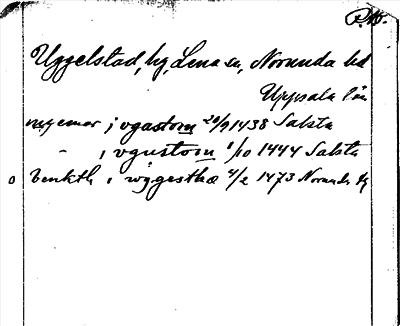 Uggelstad, by, Lena sn, Norunda hd
Uppsala län
ingemar i vgastom 20/9 1438 Salsta
- i vgustom 1/10 1444 Salsta
o benkth i wggesthæ 4/2 1473 Norunda